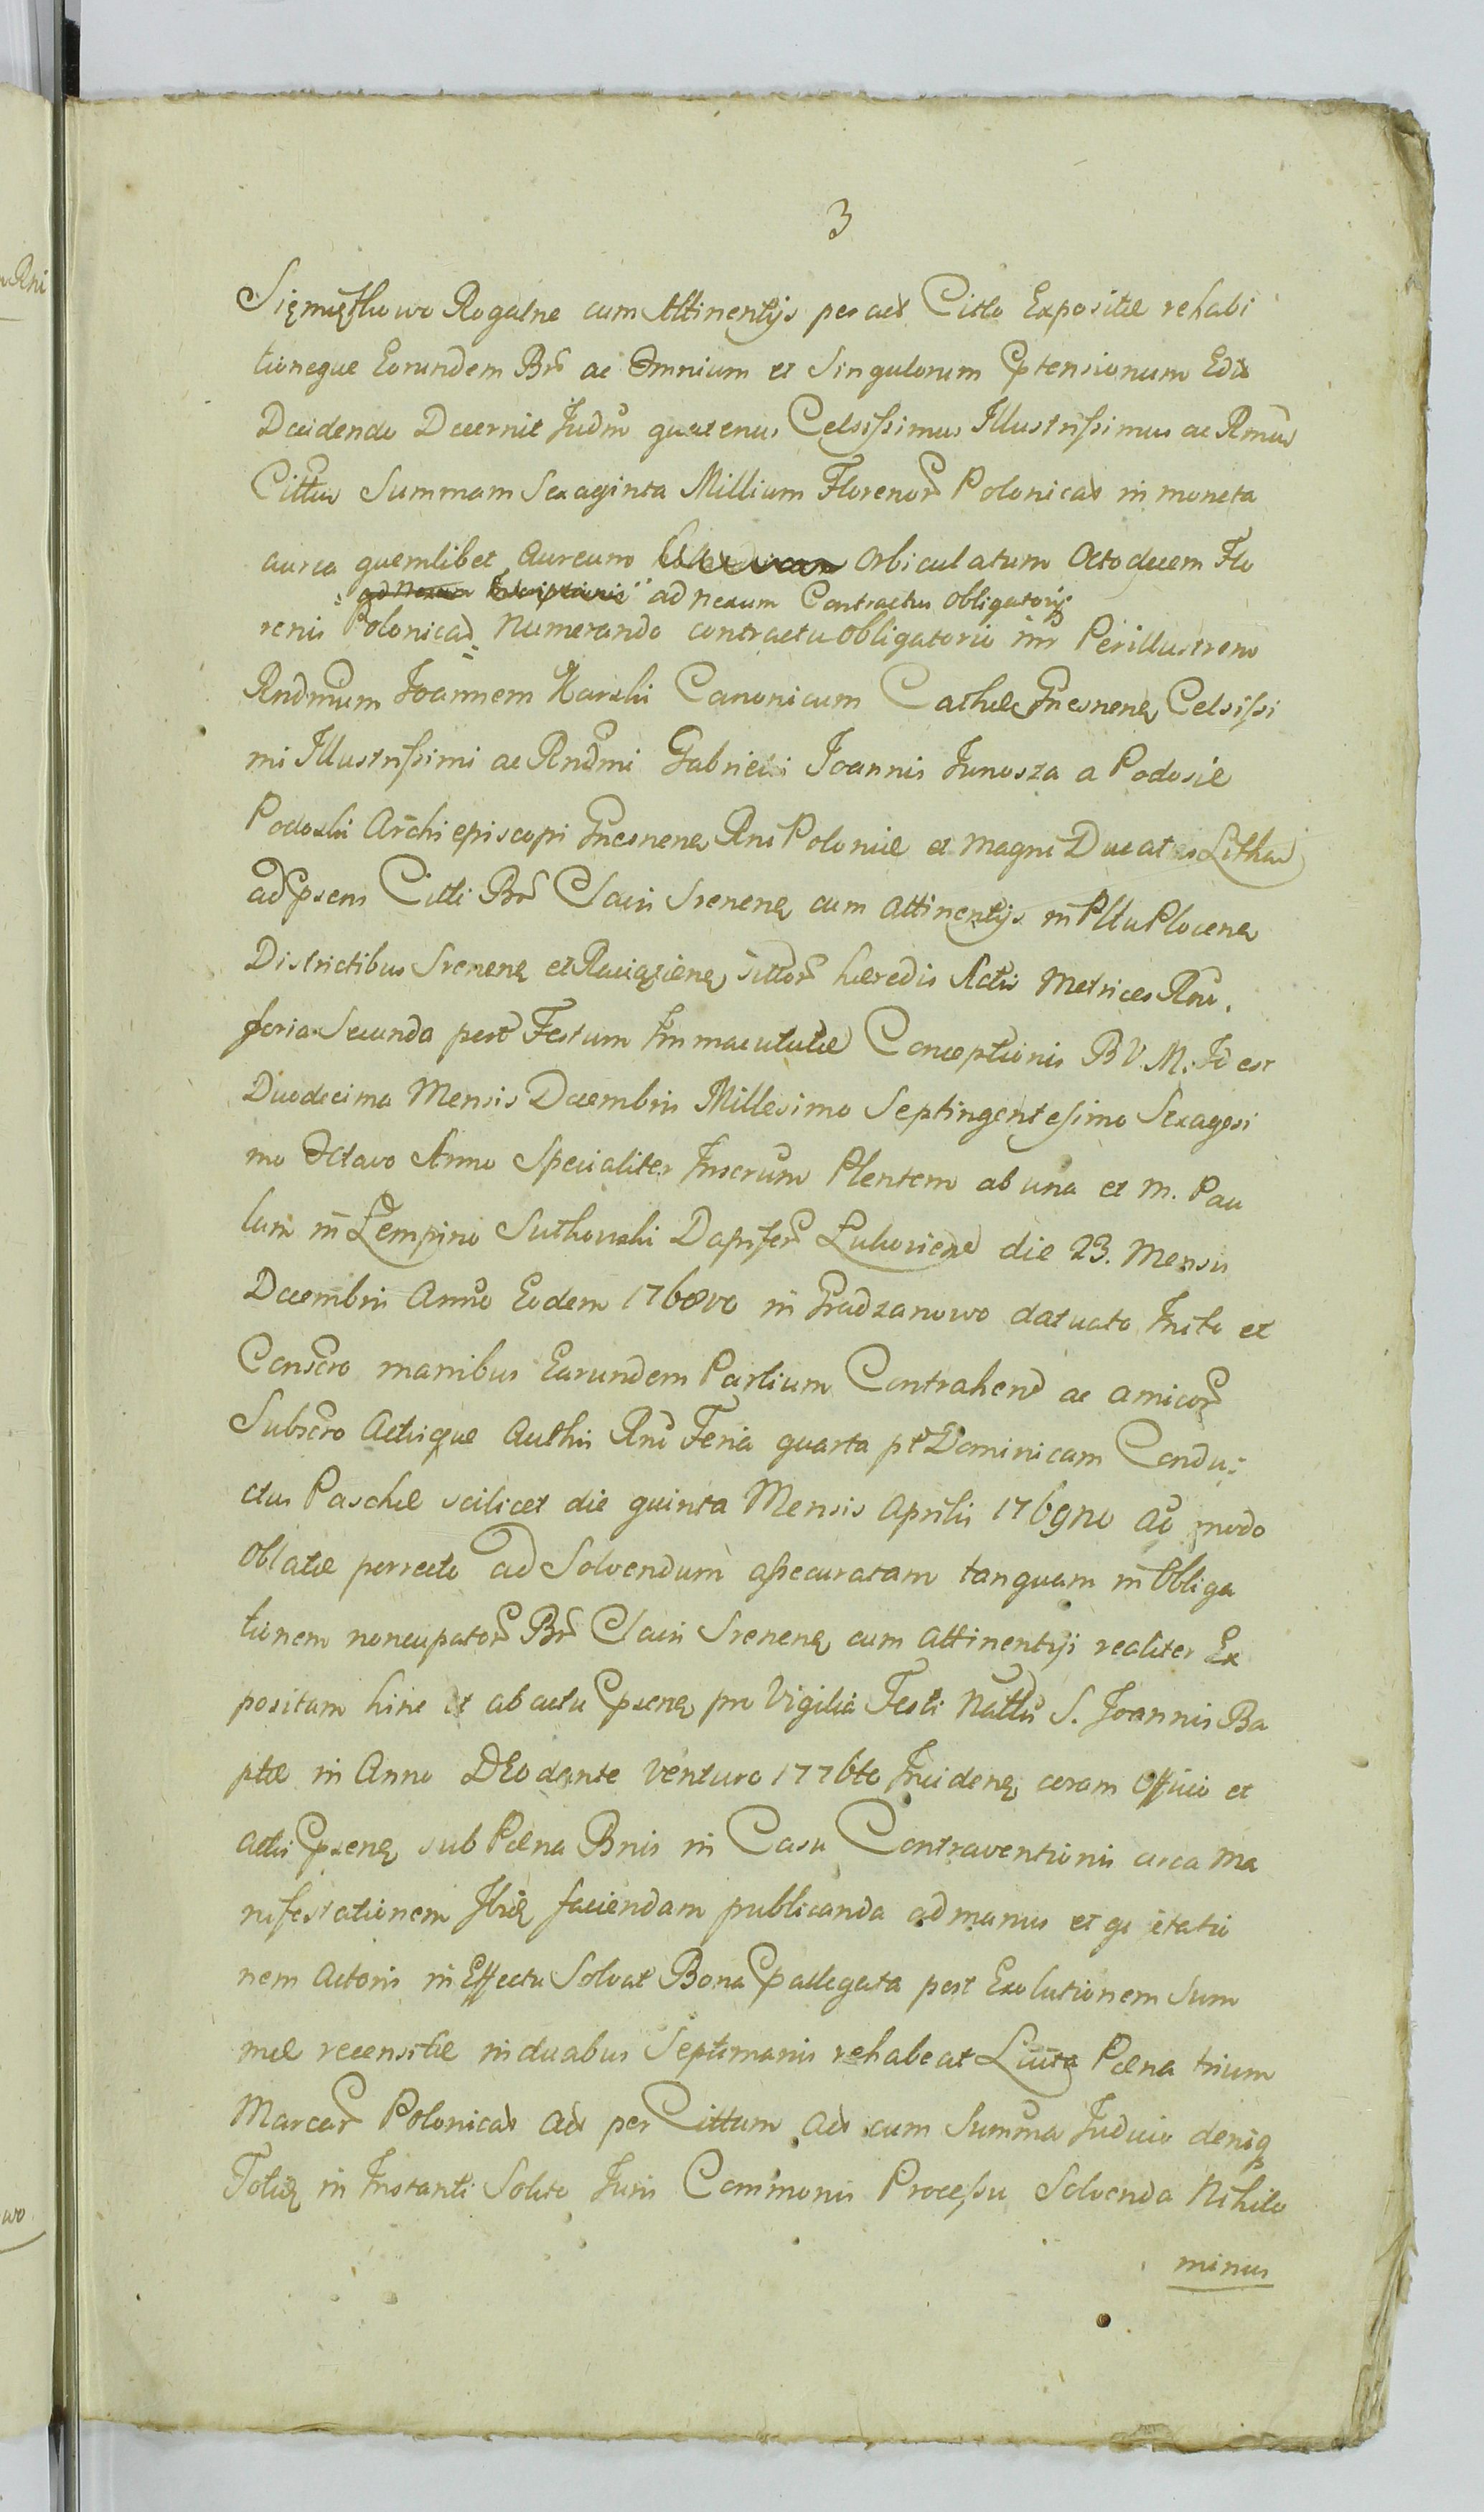 3
Sięmiątkowo Rogalne cum Attinentijs per act Citto Expositæ rehabi
tioneque Eorundem Brô ac Omnium et Singulorum Ptensionum Edit
Decidendo Decernit Judm quatenus Celsissimus Illustrissimus ac Rmus
Cittus Summam Sexaginta Millium Florenor Polonical in moneta
aurea quemlibet Aureum Orbiculatum Octodecem Flo
ad nexum Inscriptionis ad nexum Contractus Obligatorij
renis Polonical Numerando contractu obligatorio inr Perillustrem
Rndmum Joannem Karski Canonicum Cathdr Gnesnenq Celsissi
mi Illustrissimi ac Rndmi Gabrielis Joannis Junosza a Podosie
Podoski Archiepiscopi Gnesnenq Rni Poloniæ et Magni Ducatus Lithu
ad Psens Citti Br Clavis Srenenq cum attinentijs in Pltu Plocenq
Districtibus Srenenq et Raciązienq sittor hæredis Actis Metrices Rni.
feria Secunda post Festum Immaculatæ Conceptionis B V. M. Id est
Duodecima Mensis Decembris Millesimo Septingentesimo Sexagesi
mo Octavo Anno Specialiter Inscrum Plentem ab una et M. Pau
lum in Łempino Sutkowski Dapifer Łukoviens die 23. Mensis
Decembris Anno Eodem 1768vo in Gradzanowo datuato Inito et
Conscro manibus Earundem Partium Contrahend ac amicor
Subscro Actisque Authis Rni Feria quarta pt Dominicam Condu-
ctus Paschæ scilicet die quinta Mensis Aprilis 1769no ao modo
Oblatæ porrecto ad Solvendum assecuratam tanquam in Obliga
tionem noncupator Br Clavis Srenenq cum Attinentijs realiter Ex
positam hinc et ab actu Psenq pro Vigilia Festi Nattis S. Joannis Ba
ptæ in Anno DEo dante venturo 1776to Incidenq coram Officio et
actis Psenq sub Pæna Bnis in Casu Contraventionis circa Ma
nifestationem Ibiq faciendam publicanda ad manus et q etatio
nem Actoris in Effectu Solvat Bona Pallegata post Exolutionem Sum
mæ recensitæ in duabus Septimanis rehabeat Luita Pæna trium
Marcar Polonical Adt per Cittum Adt cum Summa Judicio deniq
Totiq in Instanti Solito Juris Communis Processu Solvenda Nihilo
minus